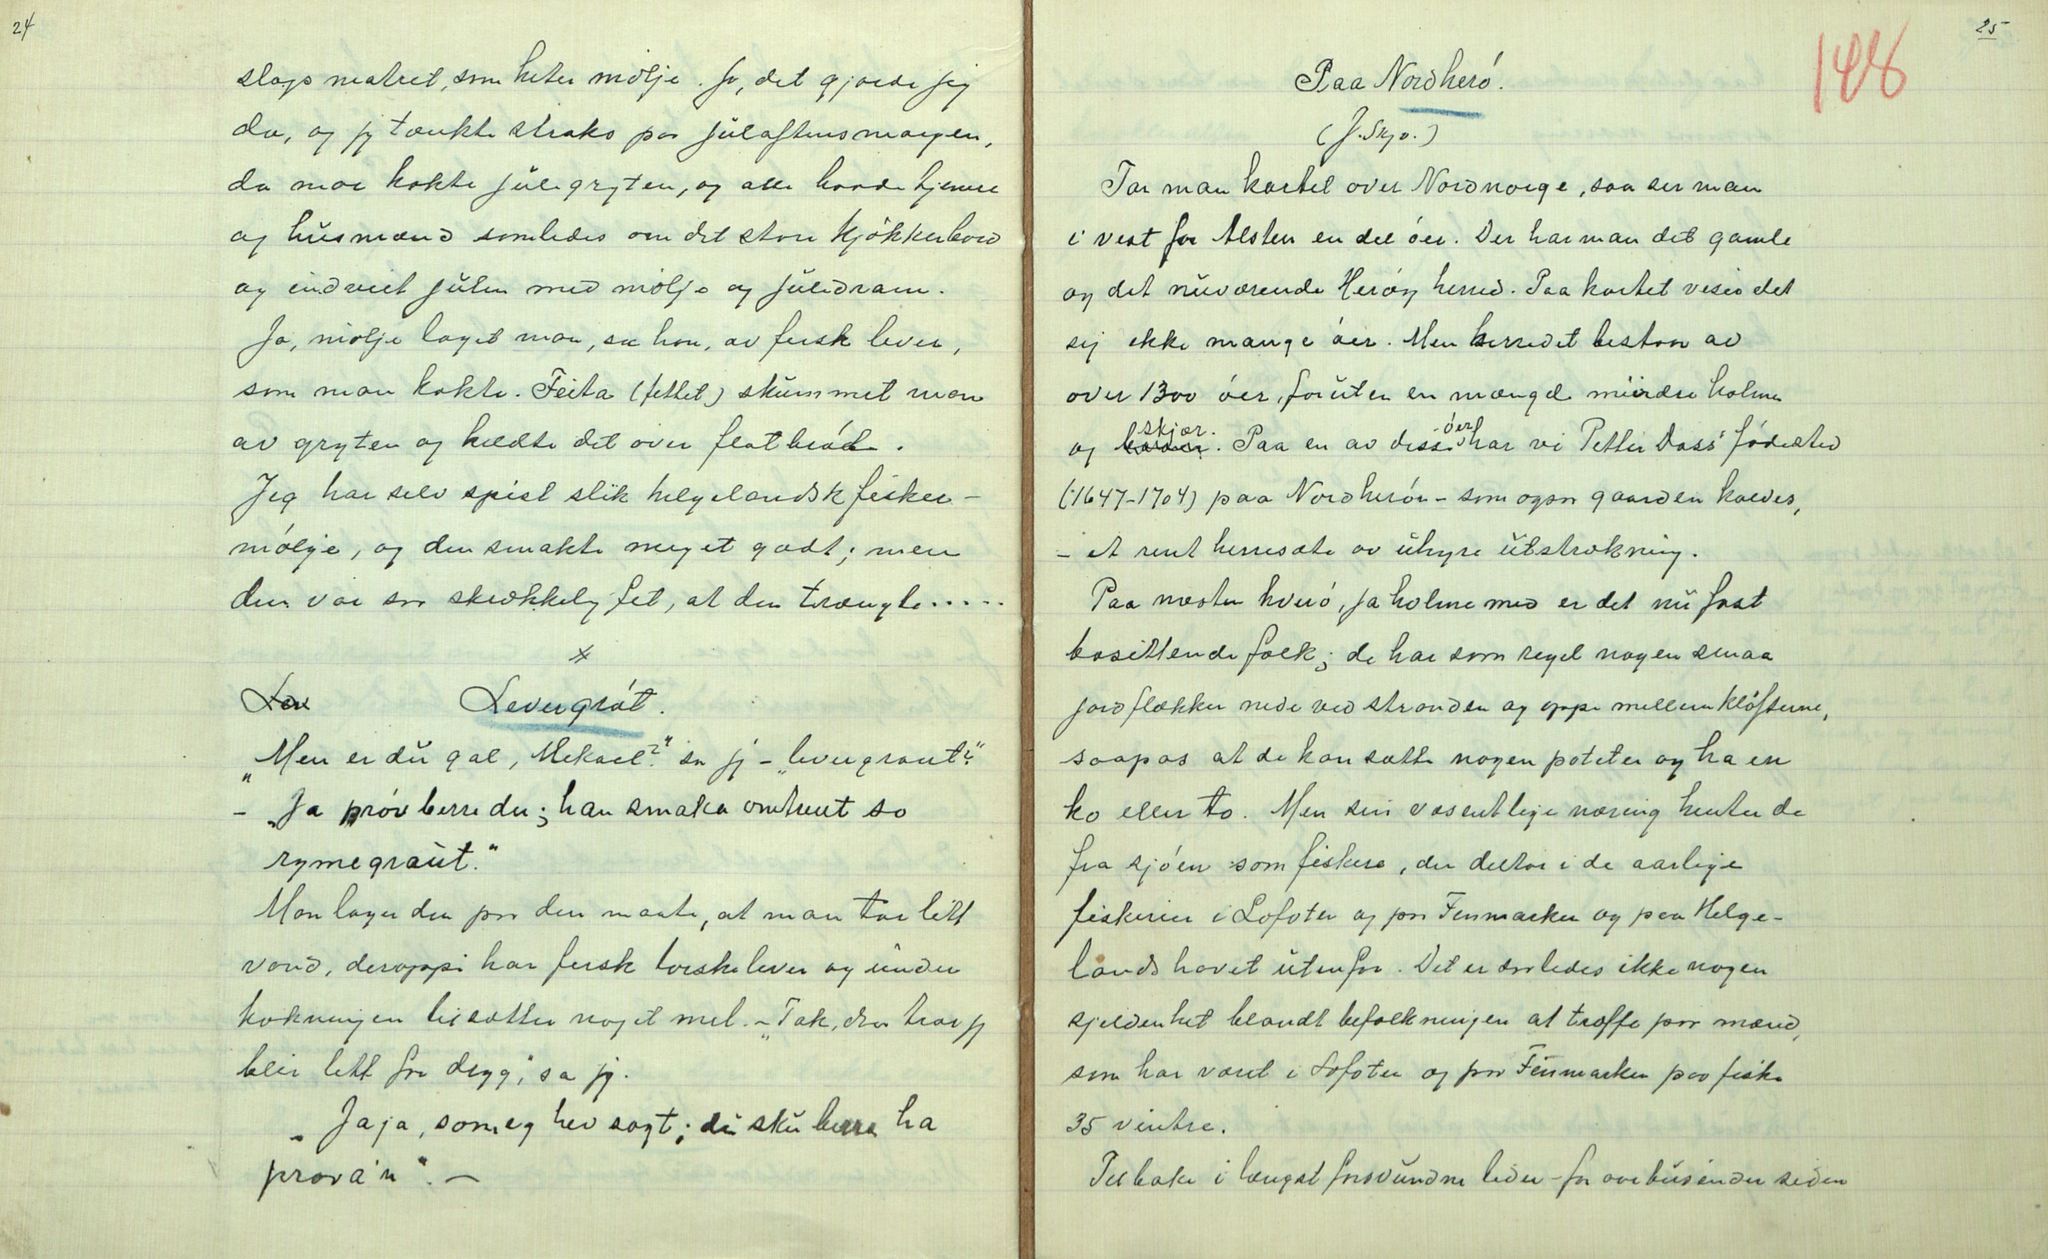 24
slags matret, som heter mölje. Jo, det gjorde jeg
da, og jeg tænkte straks paa julaftensmorgen,
da mor kokte julegryten, og alle baade tjenere
og husmænd samledes om det store kjökkenbord
og indviet julen med mölje og juledram.
Ja, mölje laget man, sa han, av fersk lever,
som man kokte. Feita (fettet) skummet man
av gryten og hældte det over flatbröd.
Jeg har selv spist slik helgelandsk fisker-
mölje, og den smakte meget godt; men
den var saa skrækkelig fet, at den trængte.....
x
Lev Levergröt.
„Men er du gal, Mekael?" sa jeg – „levergraut?"
– „Ja pröv berre du; han smaka omtrent so
rymegraut."
Man lager den paa den maate, at man tar litt
vand, deroppi har fersk torskelever og under
kokningen tilsætter noget mel. – „Tak, den tror jeg
blir litt for dryg", sa jeg.
„Ja ja, som eg hev sagt; du sku berre ha
prova'n". –
25
148
Paa Nordherö.
(J. Skjo.)
Tar man kartet over Nordnorge, saa ser man
i vest for Alsten en del öer. Der har man det gamle
og det nuværende Heröy herred. Paa kartet viser det
sig ikke mange öer. Men herredet bestaar av
over 1300 öer, foruten en mængde mindre holmer
og skjær. Paa en av disse öer har vi Petter Dass' födested
(1647-1704) paa Nordherön – som ogsaa gaarden kaldes,
– et rent herresæte av uhyre utstrækning.
Paa næsten hver ö, ja holme med er det nu fast
bosittende folk; de har som regel nogen smaa
jordflækker nede ved stranden og oppe mellem klöfterne,
saapas at de kan sætte nogen poteter og ha en
ko eller to. Men sin væsentlige næring henter de
fra sjöen som fiskere, der deltar i de aarlige
fiskerier i Lofoten og paa Finmarken og paa Helge-
landshavet utenfor. Det er saaledes ikke nogen
sjeldenhet blandt befolkningen at træffe paa mænd,
som har været i Lofoten og paa Finmarken paa fiske
35 vintre.
Tilbake i længst forsvundne tider – for over tusinder siden